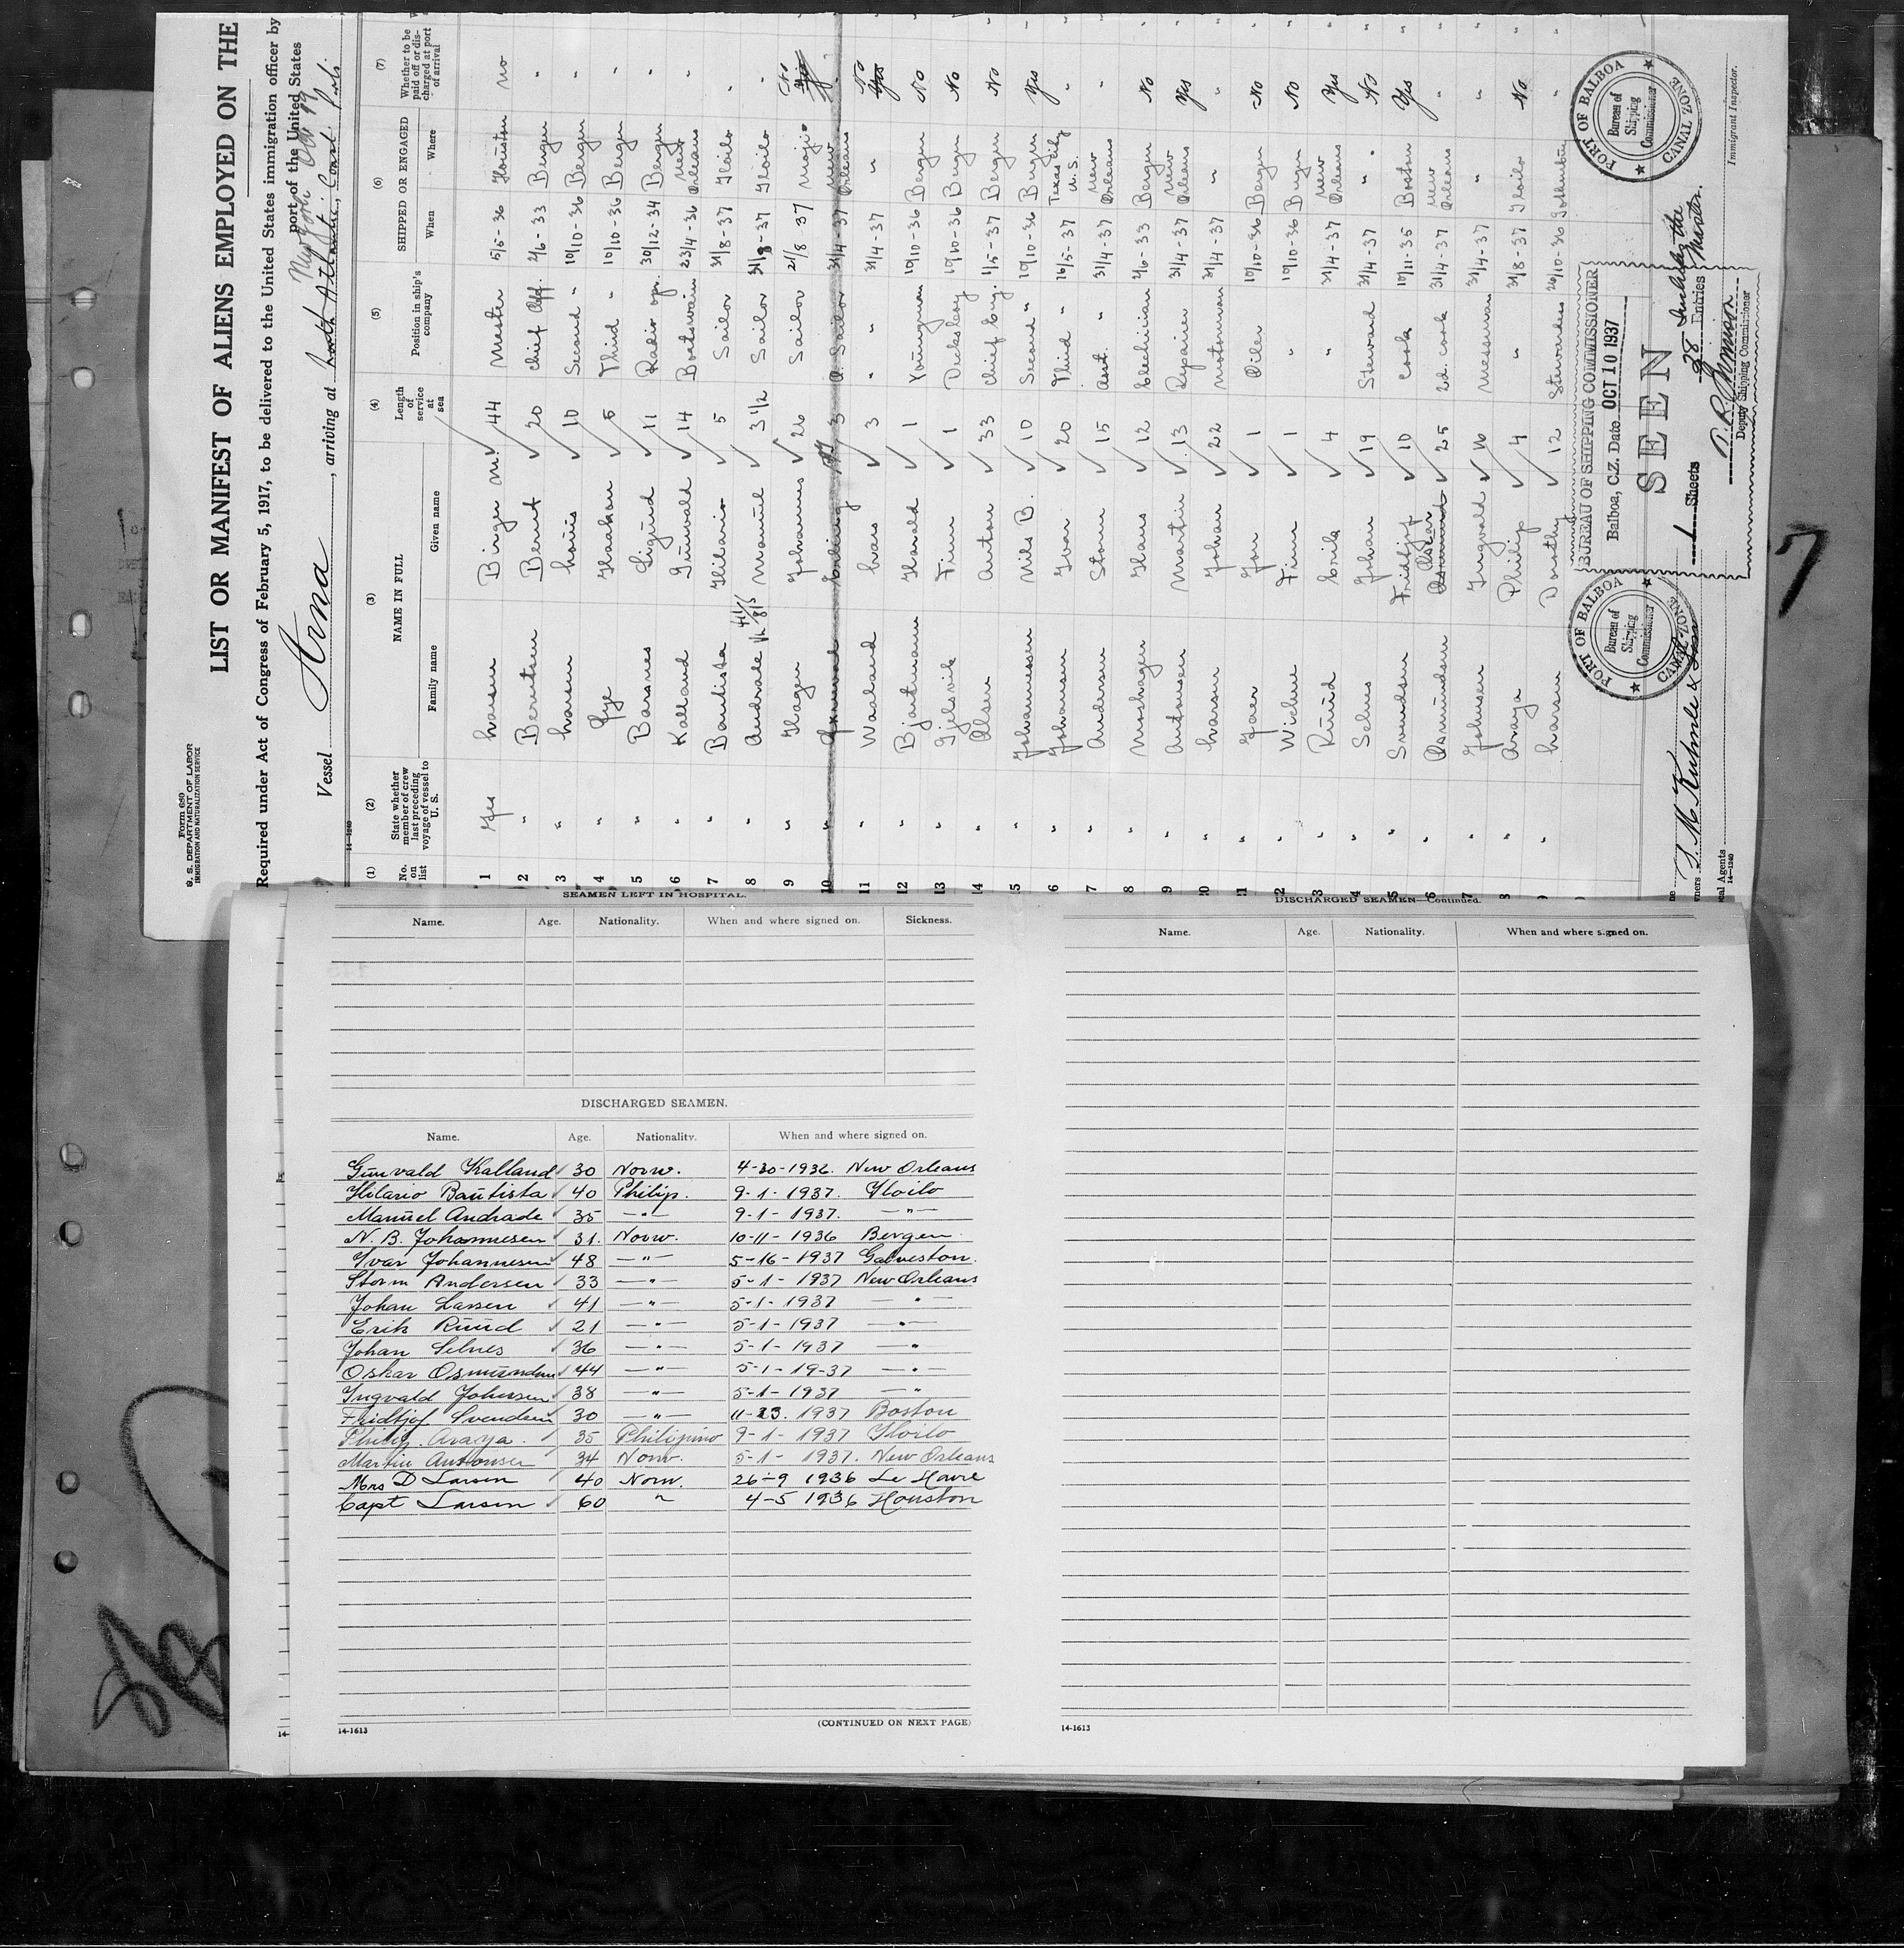 Form 680
U. S. DEPARTMENT OF LABOR
IMMIGRATION AND NATURALIZATION SERVICE
LIST OR MANIFEST OF ALIENS EMPLOYED ON THE
Required under Act of Congress of February 5, 1917, to be delivered to the United States immigration officer by
port of the United States
Vessel Arna, arriving at North Atlantic Coast Ports
14-1240
(1) (2) (3) (4) (5) (6) (7)
No. on list State whether member of crew last preceding voyage of vessel to U. S. NAME IN FULL Length of service at sea Position in ship's company SHIPPED OR ENGAGED Whether to be paid off or discharged at port of arrival
Family name Given name When Where
1 Yes Larsen Birger M. 44 Master 5/5-36 Houston No
2 " Berntsen Bernt 20 Chief Off. 2/6-33 Bergen "
3 " Larsen Louis 10 Second " 10/10-36 Bergen "
4 " Lye Haakon 5 Third " 10/10-36 Bergen "
5 " Barsnes Sigurd 11 Radio opr. 30/12-34 Bergen "
6 " Kalland Gunvald 14 Boatswain 23/4-36 New Orleans "
7 " Bautista Hilario 5 Sailor 31/8-37 Iloilo "
8 " Andrade Manuel 3 1/2 Sailor 31/8-37 Iloilo "
9 " Hagen Johannes 26 Sailor 21/8 37 Moji No
10 " 3 O. Sailor 31/4-37 New Orleans
11 " Waaland Lars 3 " 31/4-37 " No Yes
12 " Bjatmann Harald 1 Youngman 10/10-36 Bergen No
13 " Gjelsvik Finn 1 Decksboy 10/10-36 Bergen No
14 " Olsen Anton 33 Chief Eng. 1/5-37 Bergen No
5 " Johannessen Nils B. 10 Second " 10/10-36 Bergen Yes
6 " Johansen Ivar 20 Third " 16/5-37 Texas City U.S. "
7 " Andersen Storm 15 Asst. " 31/4-37 New Orleans "
8 " Moshagen Hans 12 Electrician 2/6-33 Bergen No
9 " Antonsen Martin 13 Repairer 31/4-37 New Orleans Yes
0 " Larsen Johan 22 Motorman 31/4-37 " "
1 " Gaer Jon 1 Oiler 10/10-36 Bergen No
2 " Wichne Finn 1 " 10/10-36 Bergen No
3 " Ruud Erik 4 " 31/4-37 New Orleans Yes
4 " Selnes Johan 19 Steward 31/4-37 " No
5 " Svendsen Fridtjof 10 Cook 10/11-35 Boston Yes
6 " Osmundsen Oscar 25 2d. cook 31/4-37 New Orleans "
7 " Johnsen Ingvald 16 Messman 31/4-37 " "
8 " Araya Philip 4 " 31/8-37 Iloilo No
9 " Larsen Dorothy 12 Stewardess 26/10-36 Gothenburg "
Immigrant Inspector.
PORT OF BALBOA
Bureau of Shipping Commissioner
CANAL ZONE
PORT OF BALBOA
Bureau of Shipping Commissioner
CANAL ZONE
BUREAU OF SHIPPING COMMISSIONER
Balboa, C.Z. Date OCT 10 1937
SEEN
1 Sheets 28 Entries Including the Master.
Deputy Shipping Commissioner
14-1240
7
SEAMEN LEFT IN HOSPITAL.
Name. Age. Nationality. When and where signed on. Sickness.
DISCHARGED SEAMEN.
Name. Age. Nationality. When and where signed on.
Gunvald Kalland 30 Norw. 4-30-1936. New Orleans
Hilario Bautista 40 Philip. 9-1-1937. Iloilo
Manuel Andrade 35 —"— 9-1-1937. —"—
N. B. Johannesen 31. Norw. 10-11-1936 Bergen
Ivar Johannesen 48 —"— 5-16-1937 Galveston.
Storm Andersen 33 —"— 5-1-1937 New Orleans
Johan Larsen 41 —"— 5-1-1937 —"—
Erik Ruud 21 —"— 5-1-1937 —"—
Johan Selnes 36 —"— 5-1-1937 —"—
Oskar Osmundsen 44 —"— 5-1-19-37 —"—
Ingvald Johnsen 38 —"— 5-1-1937 —"
Fridtjof Svendsen 30 —"— 11-23. 1937 Boston
Philip. Araya. 35 Philipino 9-1-1937 Iloilo
Martin Antonsen 34 Norw. 5-1-1937. New Orleans
Mrs D Larsen 40 Norw. 26-9 1936 Le Havre
Capt Larsen 60 " 4-5 1936 Houston
14-1613
(CONTINUED ON NEXT PAGE)
DISCHARGED SEAMEN—Continued.
Name. Age. Nationality. When and where signed on.
14-1613